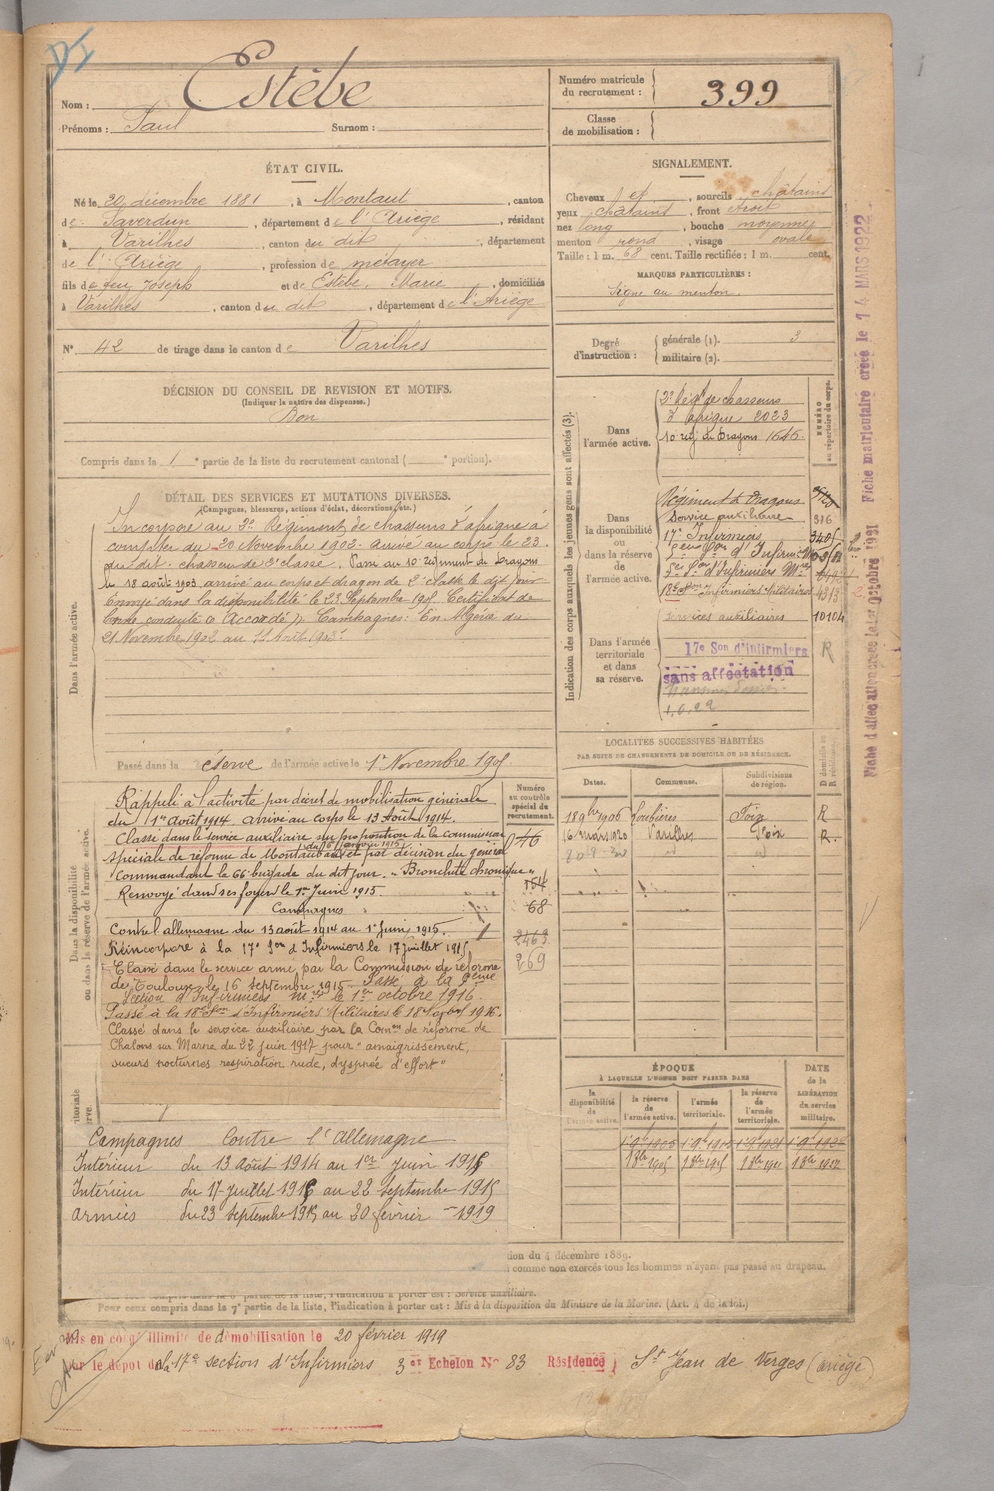 Nom : Estèbe
Prénoms : Paul Surnom :
Numéro matricule du recrutement : 399
Classe de mobilisation :
ÉTAT CIVIL.
Né le 20 décembre 1881, à Montaut, canton
de Saverdun, département de l'Ariège, résidant
à Varilhes, canton du dit, département
de l'Ariège, profession de métayer
fils de feu Joseph et de Estèbe, Marie, domiciliés
à Varilhes, canton du dit, département de l'Ariège
N° 42 de tirage dans le canton de Varilhes
SIGNALEMENT.
Cheveux , sourcils châtains
yeux châtains, front étroit
nez long, bouche moyenne
menton rond, visage ovale
Taille : 1 m. 68 cent. Taille rectifiée : 1 m. cent.
MARQUES PARTICULIÈRES :
Signe au menton.
Degré d'instruction : générale (1). 3
militaire (2).
DÉCISION DU CONSEIL DE REVISION ET MOTIFS.
(Indiquer la nature des dispenses.)
Bon
Compris dans la 1e partie de la liste du recrutement cantonal ( e portion).
DÉTAIL DES SERVICES ET MUTATIONS DIVERSES.
(Campagnes, blessures, actions d'éclat, décorations, etc.)
Dans l'armée active.
Incorporé au 2e Régiment de chasseurs d'afrique à
compter du 20 Novembre 1902. arrivé au corps le 23
du dit. chasseur de 2e classe. Passé au 10 Régiment de Dragons
le 18 août 1903 arrivé au corps et dragon de 2e classe le dit jour
Envoyé dans la disponibilité le 23 Septembre 1905 Certificat de
bonne conduite "Accordé" Campagnes: En Algérie du
21 Novembre 1902 au août 1903.
Passé dans la réserve de l'armée active le 1er Novembre 1905
Indication des corps auxquels les jeunes gens sont affectés (3).
NUMÉRO au répertoire du corps.
Dans l'armée active.
2e Régt de chasseurs
d'afrique 2023
10e régt de Dragons 1646
Dans la disponibilité ou dans la réserve de l'armée active.
Régiment de Dragons
Service auxiliaire 316
17e Infirmiers
9ème Son d'Infirmiers
9e Son d'Infirmiers Mres
18e Son Infirmiers Militaires 4313
Dans l'armée territoriale et dans sa réserve.
Services auxiliaires 10104
17e Son d'Infirmiers R
sans affectation
1.6.22
Fiche d'affectation créée le 1er Octobre 1921 Fiche matriculaire créée le 14 MARS 1922
Dans la disponibilité ou dans la réserve de l'armée active.
Numéro au contrôle spécial du recrutement.
Rappelé à l'activité par décret de mobilisation générale
du 1er août 1914. arrivé au corps le 13 Août 1914.
Classé dans le service auxiliaire sur proposition de la commission
spéciale de réforme de Montauban du 6 janvier 1915 et par décision du général
commandant la 66e brigade du dit jour. "Bronchite chronique"
Renvoyé dans ses foyers le 1er Juin 1915.
Campagnes
Contre l'allemagne du 13 août 1914 au 1er juin 1915.
Réincorporé à la 17e Son d'Infirmiers le 17 juillet 1915
Classé dans le service armé par la Commission de réforme
de Toulouse le 16 septembre 1915 Passé à la 9ème
Section d'Infirmiers Mres le 1er octobre 1916.
Passé à la 18e Son d'Infirmiers Militaires le 18 1916.
Classé dans le service auxiliaire par la Comon de réforme de
Chalons sur Marne du 22 juin 1917 pour "amaigrissement,
sueurs nocturnes respiration rude, dyspnée d'effort"
46
154
68
2463
269
LOCALITÉS SUCCESSIVES HABITÉES
PAR SUITE DE CHANGEMENTS DE DOMICILE OU DE RÉSIDENCE.
Dates. Communes. Subdivisions de région. D domicile ou R résidence.
18 9bre 1906 Loubières Foix R
16 mars 1920 Varilhes Foix R.
ÉPOQUE
À LAQUELLE L'HOMME DOIT PASSER DANS
DATE de la LIBÉRATION du service militaire.
la disponibilité de l'armée active. la réserve de l'armée active. l'armée territoriale. la réserve de l'armée territoriale.
Campagnes Contre l'Allemagne
Intérieur du 13 Août 1914 au 1er Juin 1915
Intérieur du 17 Juillet 1915 au 22 septembre 1915
Armées du 23 septembre 1915 au 20 février 1919
tion du 4 décembre 1889.
comme non exercés tous les hommes n'ayant pas passé au drapeau.
Pour ceux compris dans la 7e partie de la liste, l'indication à porter est : Mis à la disposition du Ministre de la Marine. (Art. 4 de la loi.)
Mis en congé illimité de démobilisation le 20 février 1919
par le dépôt de la 17e section d'Infirmiers 3er Echelon N° 83 Résidence St Jean de Verges (Ariège)